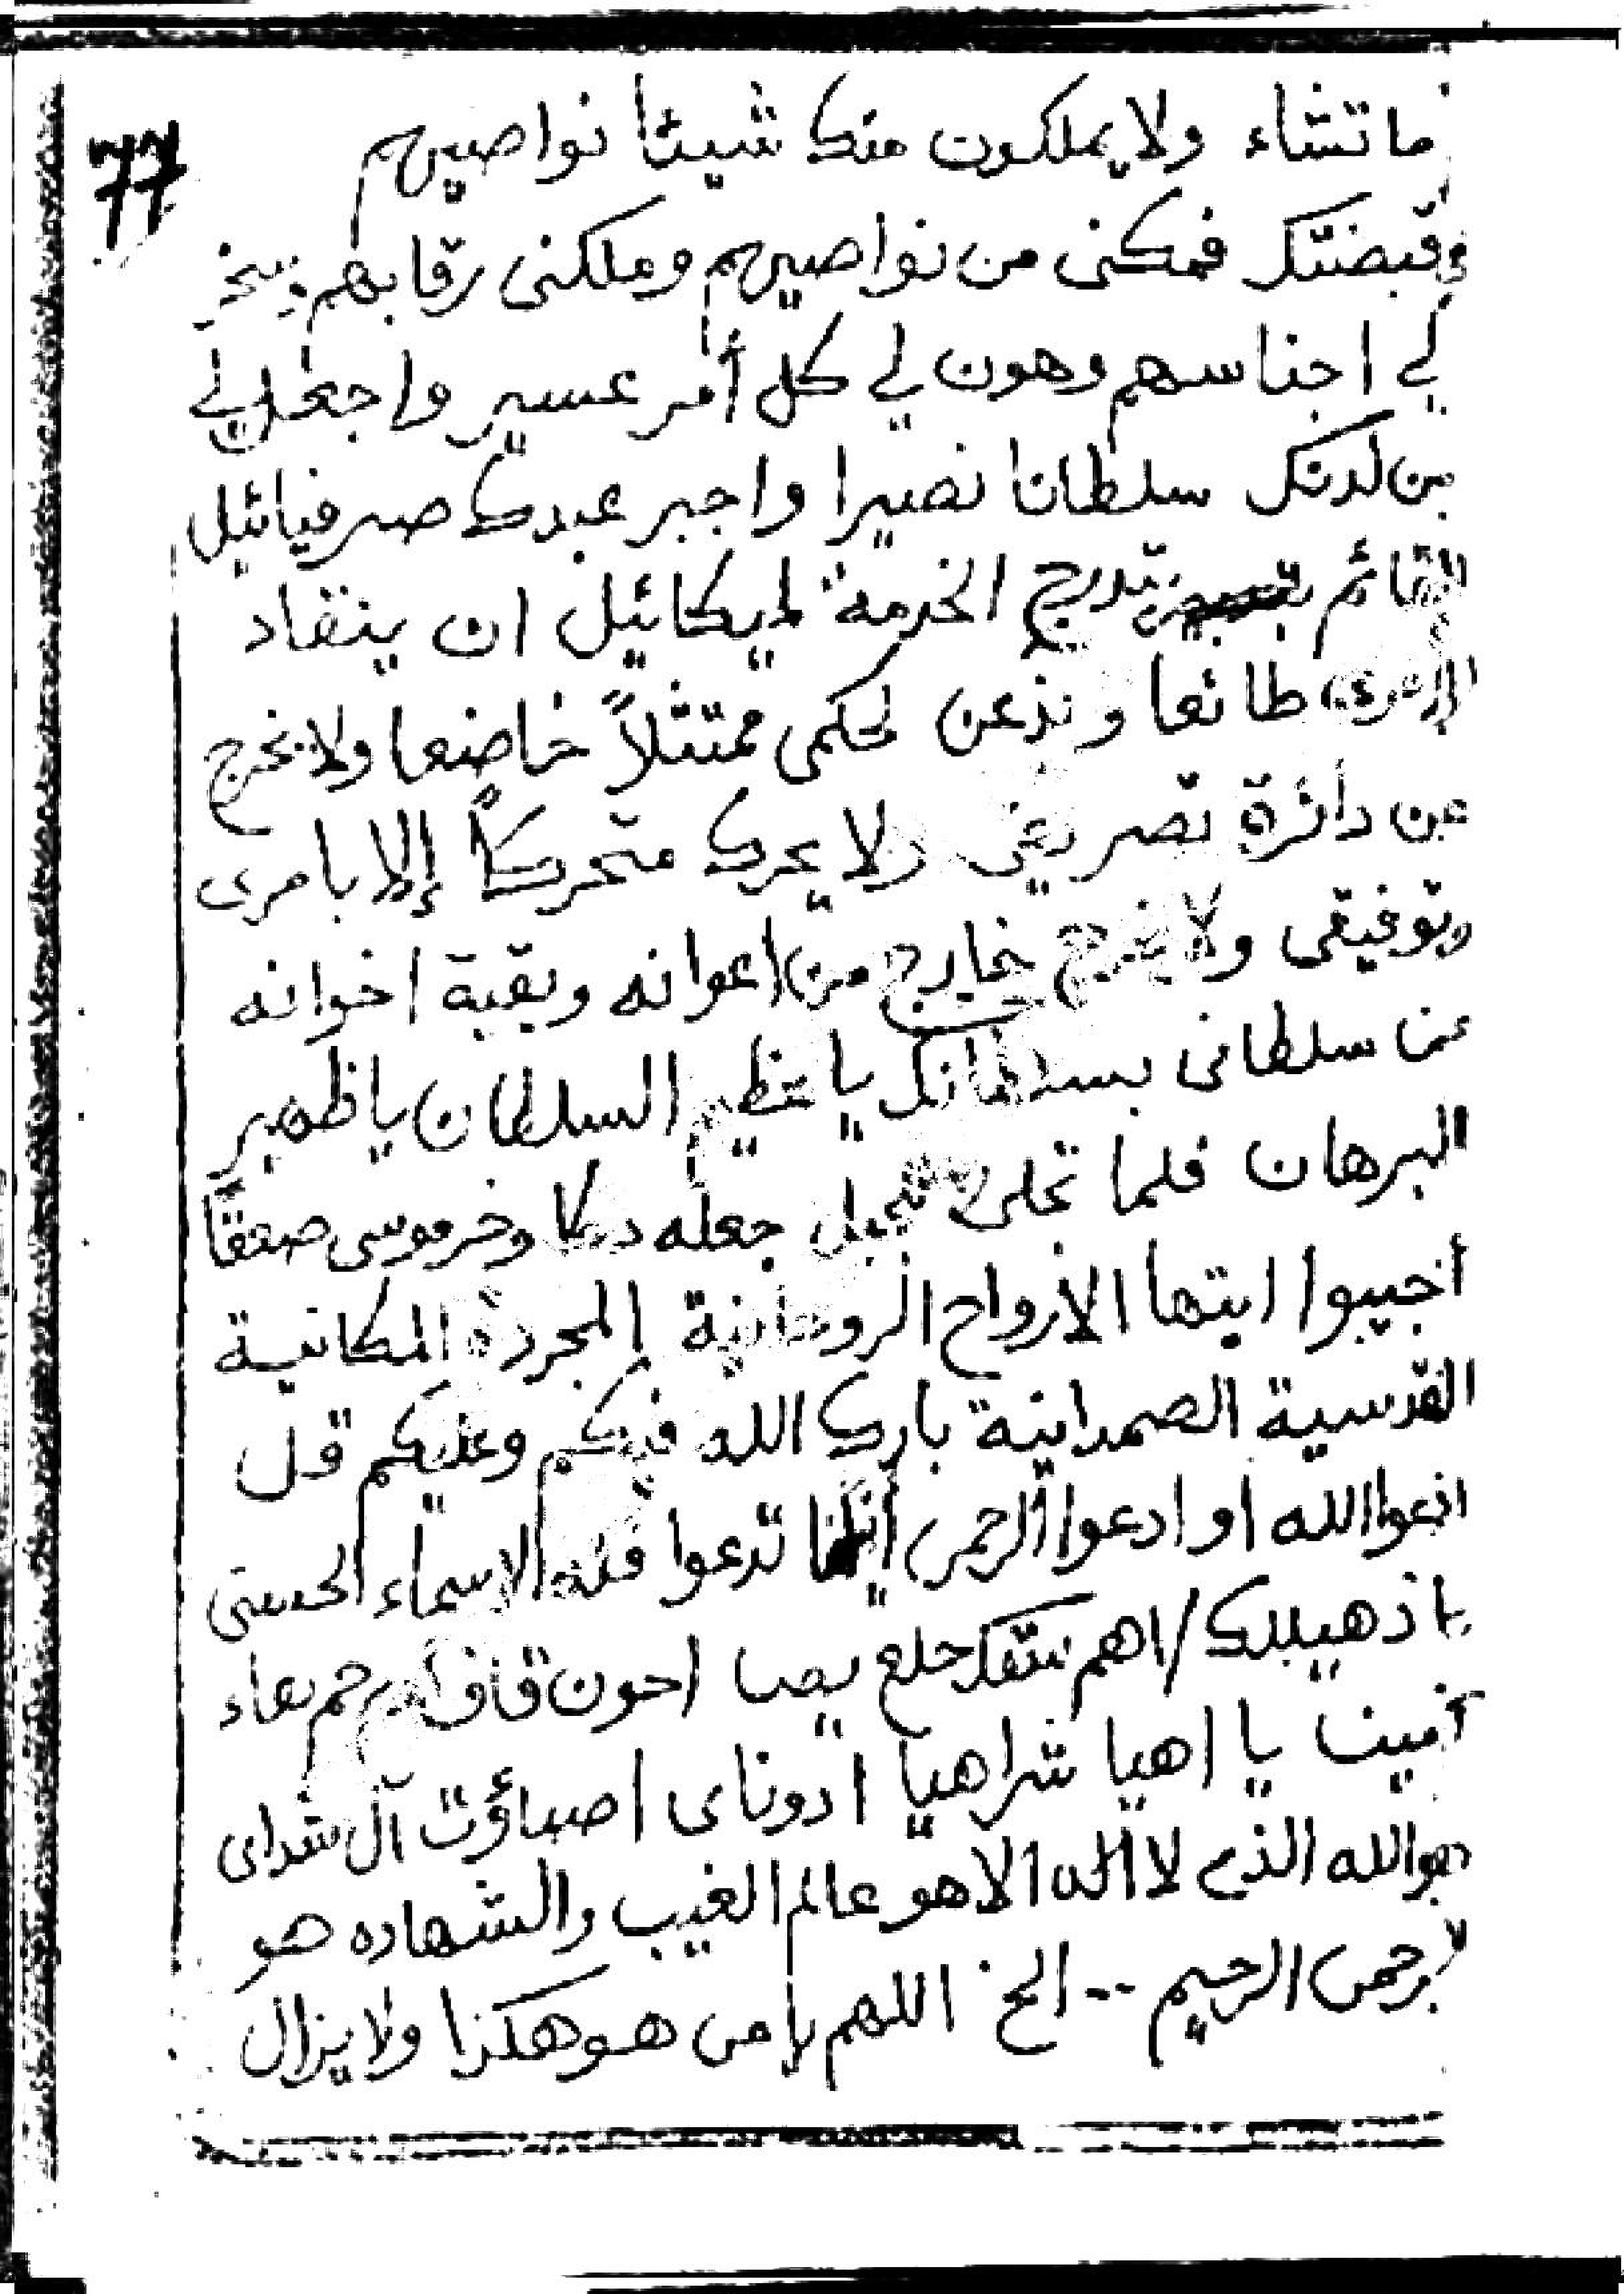 77
ما تشاء ولا يملكون منك شيئا نواصيهم
في قبضتك فمكنى من نواصيهم وملكنى رقابهم وسخر
لي اجناسهم وهون لي كل أمر عسير واجعل لي
من لدنك سلطانا نصيرا واجبر عبدك صرفيائيل
القائم بتدرج الخدمة لميكائيل ان ينقاد
طائعا ويذعن لحكمى ممتثلاً خاضعا ولا يخرج
عن دائرة تصريفى ولا يحرك متحركاً إلا بامرى
وتوفيقى ولا يخرج خارج من اعوانه وبقية اخوانه
عن سلطانى بسلطانك يا عظيم السلطان يا ظهير
البرهان فلما تجلى للجبل جعله دكا وخر موسى صعقاً
أجيبوا ايتها الأرواح الروحانية المجردة المكانية
القدسية الصمدانية بارك الله فيكم وعليكم قل
ادعوا الله او ادعوا الرحمن أيا ما تدعوا فله الاسماء الحسنى
احون قاف
آمين يا اهيا شراهيا ادوناى اصباؤت آل شداى
هو الله الذي لا اله الا هو عالم الغيب والشهاده هو
الرحمن الرحيم .. الخ اللهم يا من هو هكذا ولا يزال